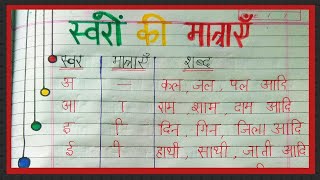 स्वरों की मात्राएँ
स्वर मात्राएँ शब्द
अ — कल, जल, पल आदि
आ ा राम, शाम, दाम आदि
इ ि दिन, गिन, जिला आदि
ई ी हाथी, साथी, जाती आदि